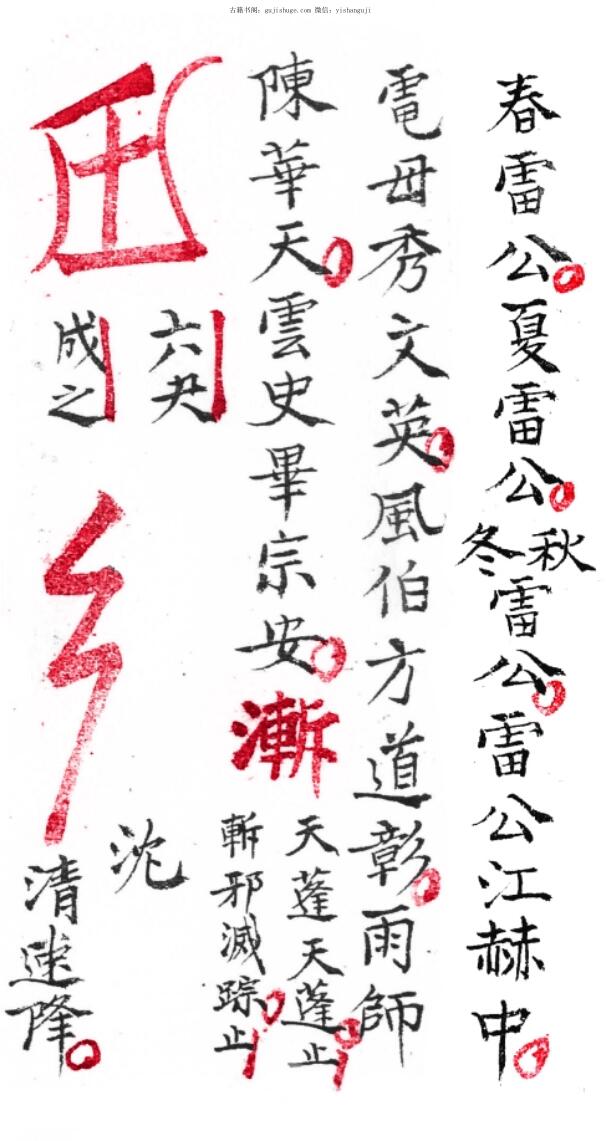 古籍书阁：gujishuge.com 微信：yishanguji
春雷公夏雷公秋冬雷公雷公江赫中
電母秀文英風伯方道彰雨師
陳華天雲史畢宗安
天蓬天蓬止
斬邪滅踪止
六尹
成之
沈
清建隆